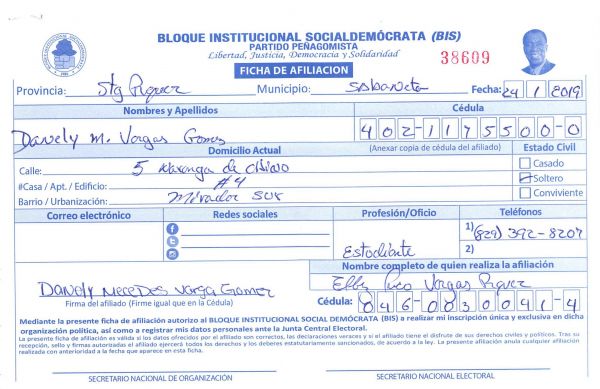 BLOQUE INSTITUCIONAL SOCIALDEMÓCRATA (BIS)
PARTIDO PEÑAGOMISTA
Libertad, Justicia, Democracia y Solidaridad
38609
FICHA DE AFILIACION
Provincia: Stg Rguez Municipio: Sabaneta Fecha: 24 1 2019
Nombres y Apellidos Cédula
Danely M. Vargas Gomez 402-1175500-0
Domicilio Actual (Anexar copia de cédula del afiliado) Estado Civil
Calle: 5 de Casado
#Casa / Apt. / Edificio: #4 Soltero
Barrio / Urbanización: Mirador sur Conviviente
Correo electrónico Redes sociales Profesión/Oficio Teléfonos
1) (829) 392-8207
Estudiante 2)
Nombre completo de quien realiza la afiliación
Vargas Rguez
Danely Mercedes Vargas Gomez
Firma del afiliado (Firme igual que en la Cédula) Cédula: 046-0030041-4
Mediante la presente ficha de afiliación autorizo al BLOQUE INSTITUCIONAL SOCIAL DEMÓCRATA (BIS) a realizar mi inscripción única y exclusiva en dicha
organización política, así como a registrar mis datos personales ante la Junta Central Electoral.
La presente ficha de afiliación es válida si los datos ofrecidos por el afiliado son correctos, las declaraciones veraces y si el afiliado tiene el disfrute de sus derechos civiles y políticos. Tras su
recepción, sello y firmas autorizadas el afiliado ejercerá todos los derechos y los deberes estatutariamente sancionados, de acuerdo a la ley. La presente afiliación anula cualquier afiliación
realizada con anterioridad a la fecha que aparece en esta ficha.
SECRETARIO NACIONAL DE ORGANIZACIÓN SECRETARIO NACIONAL ELECTORAL